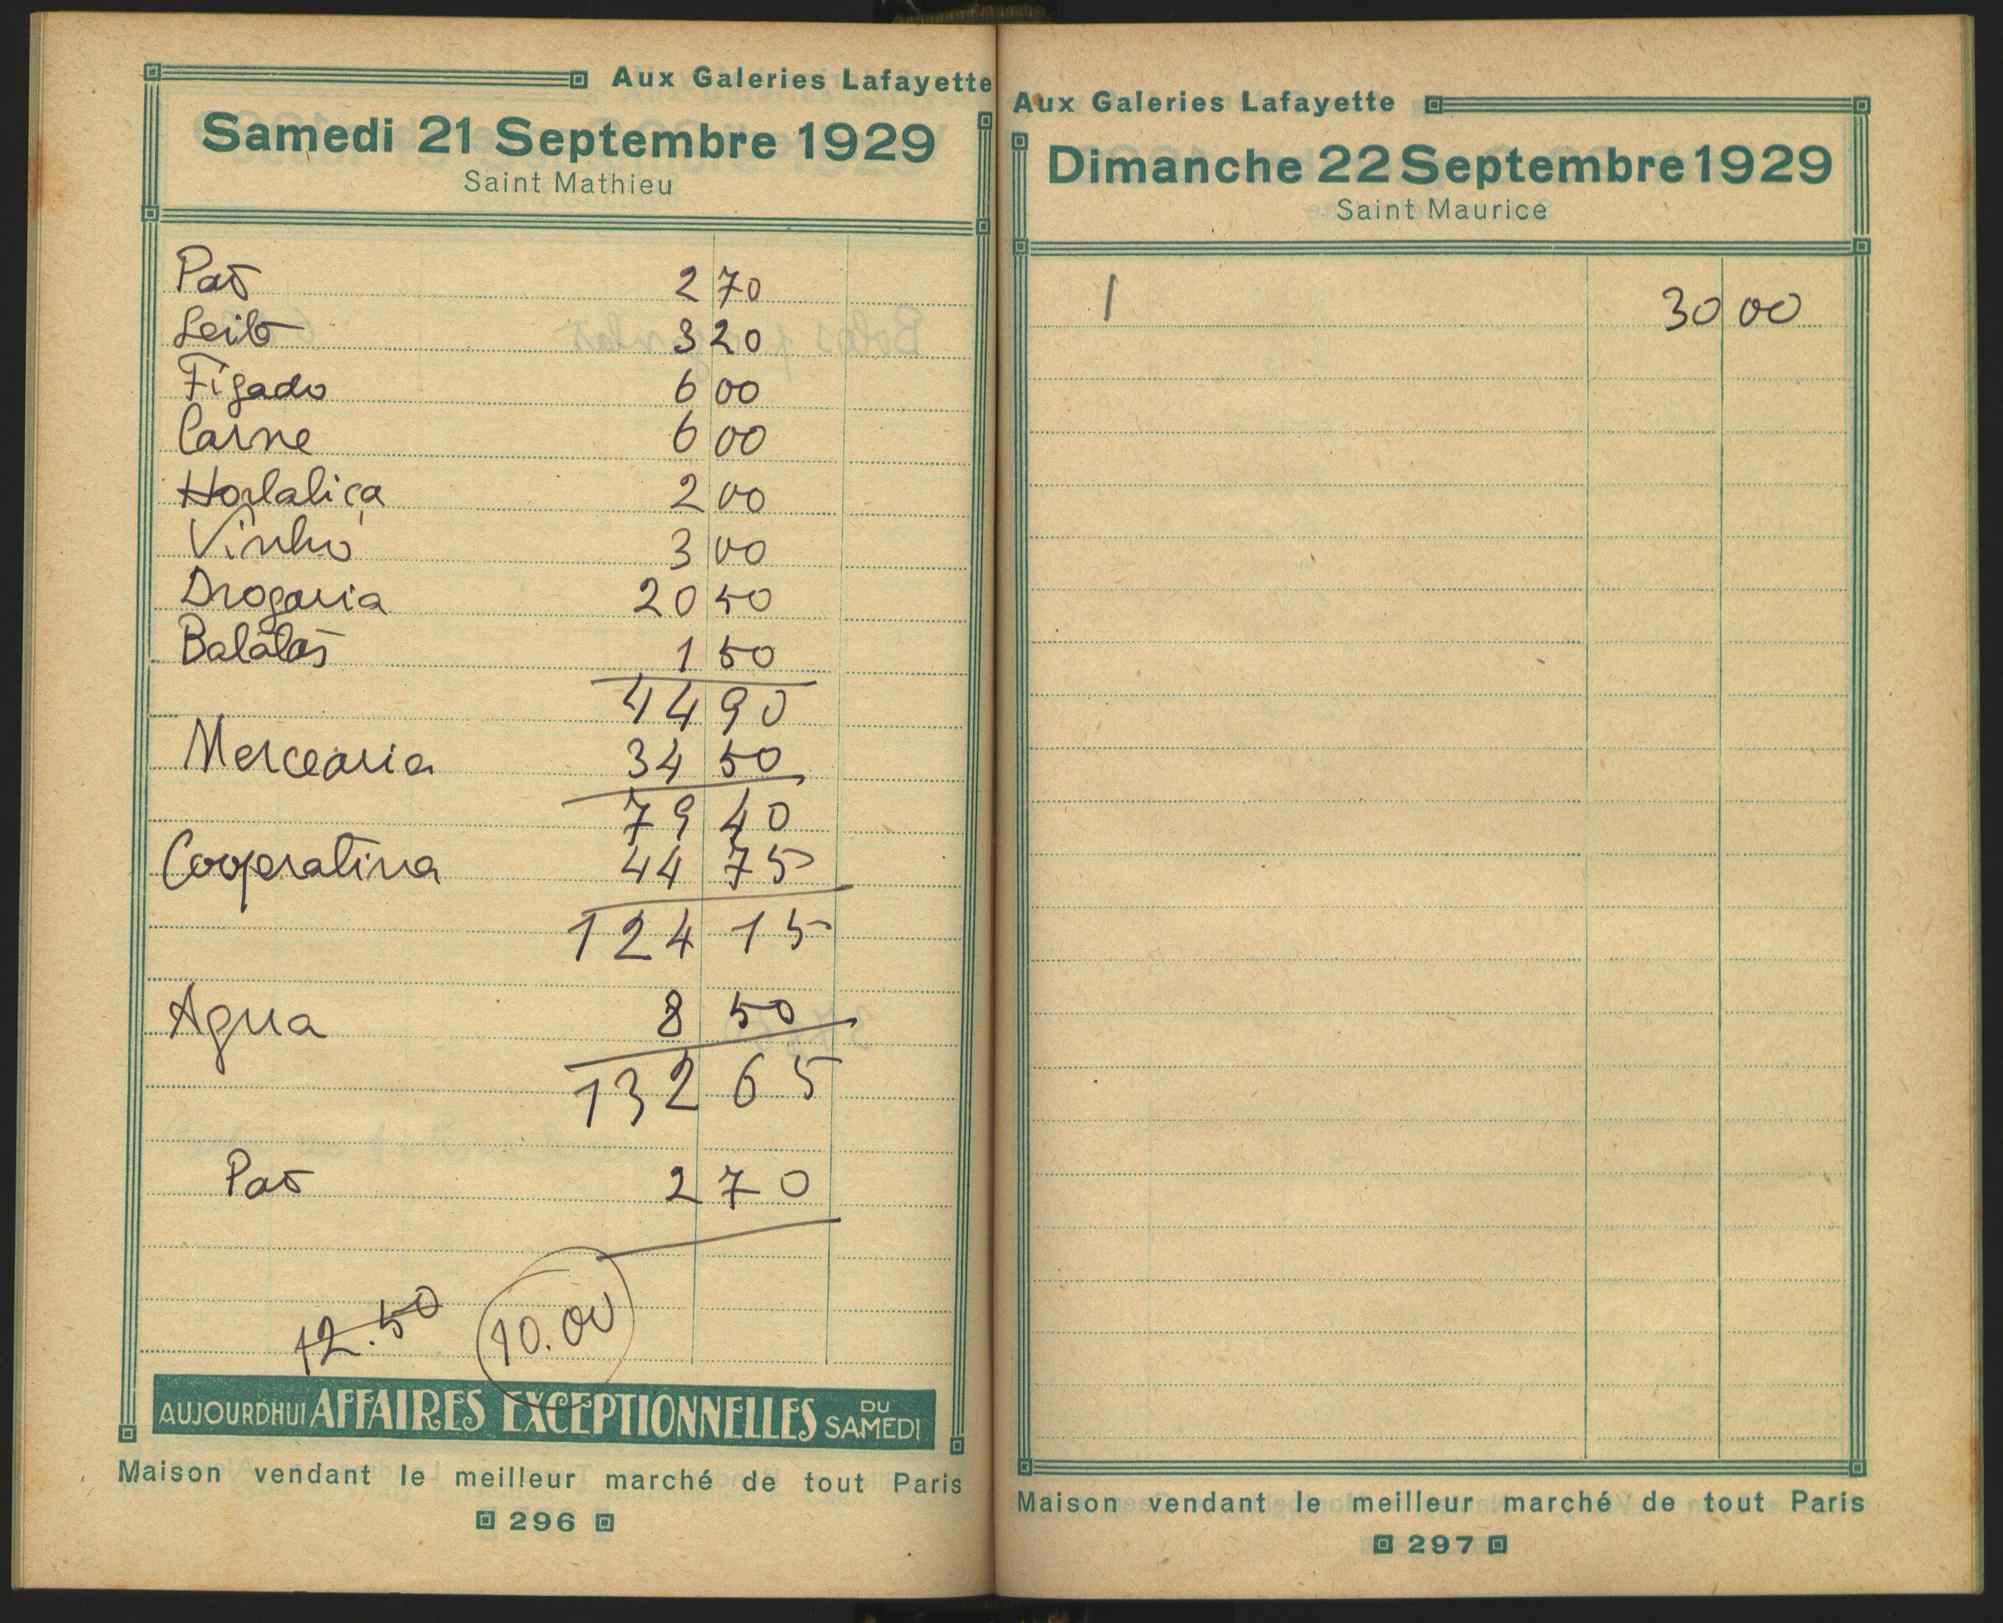 Aux Galeries Lafayette
Samedi 21 Septembre 1929
Saint Mathieu
Paõ 2 70
Leite 3 20
Fígado 6 00
Carne 6 00
Hortaliça 2 00
Vinho 3 00
Drogaria 20 50
Batatas 1 50
44 90
Mercearia 34 50
79 40
Cooperativa 44 75
124 15
Agua 8 50
132 65
Paõ 2 70
12.50 10.00
AUJOURDHUI AFFAIRES EXCEPTIONNELLES DU SAMEDI
Maison vendant le meilleur marché de tout Paris
296
Aux Galeries Lafayette
Dimanche 22 Septembre 1929
Saint Maurice
1 30 00
Maison vendant le meilleur marché de tout Paris
297